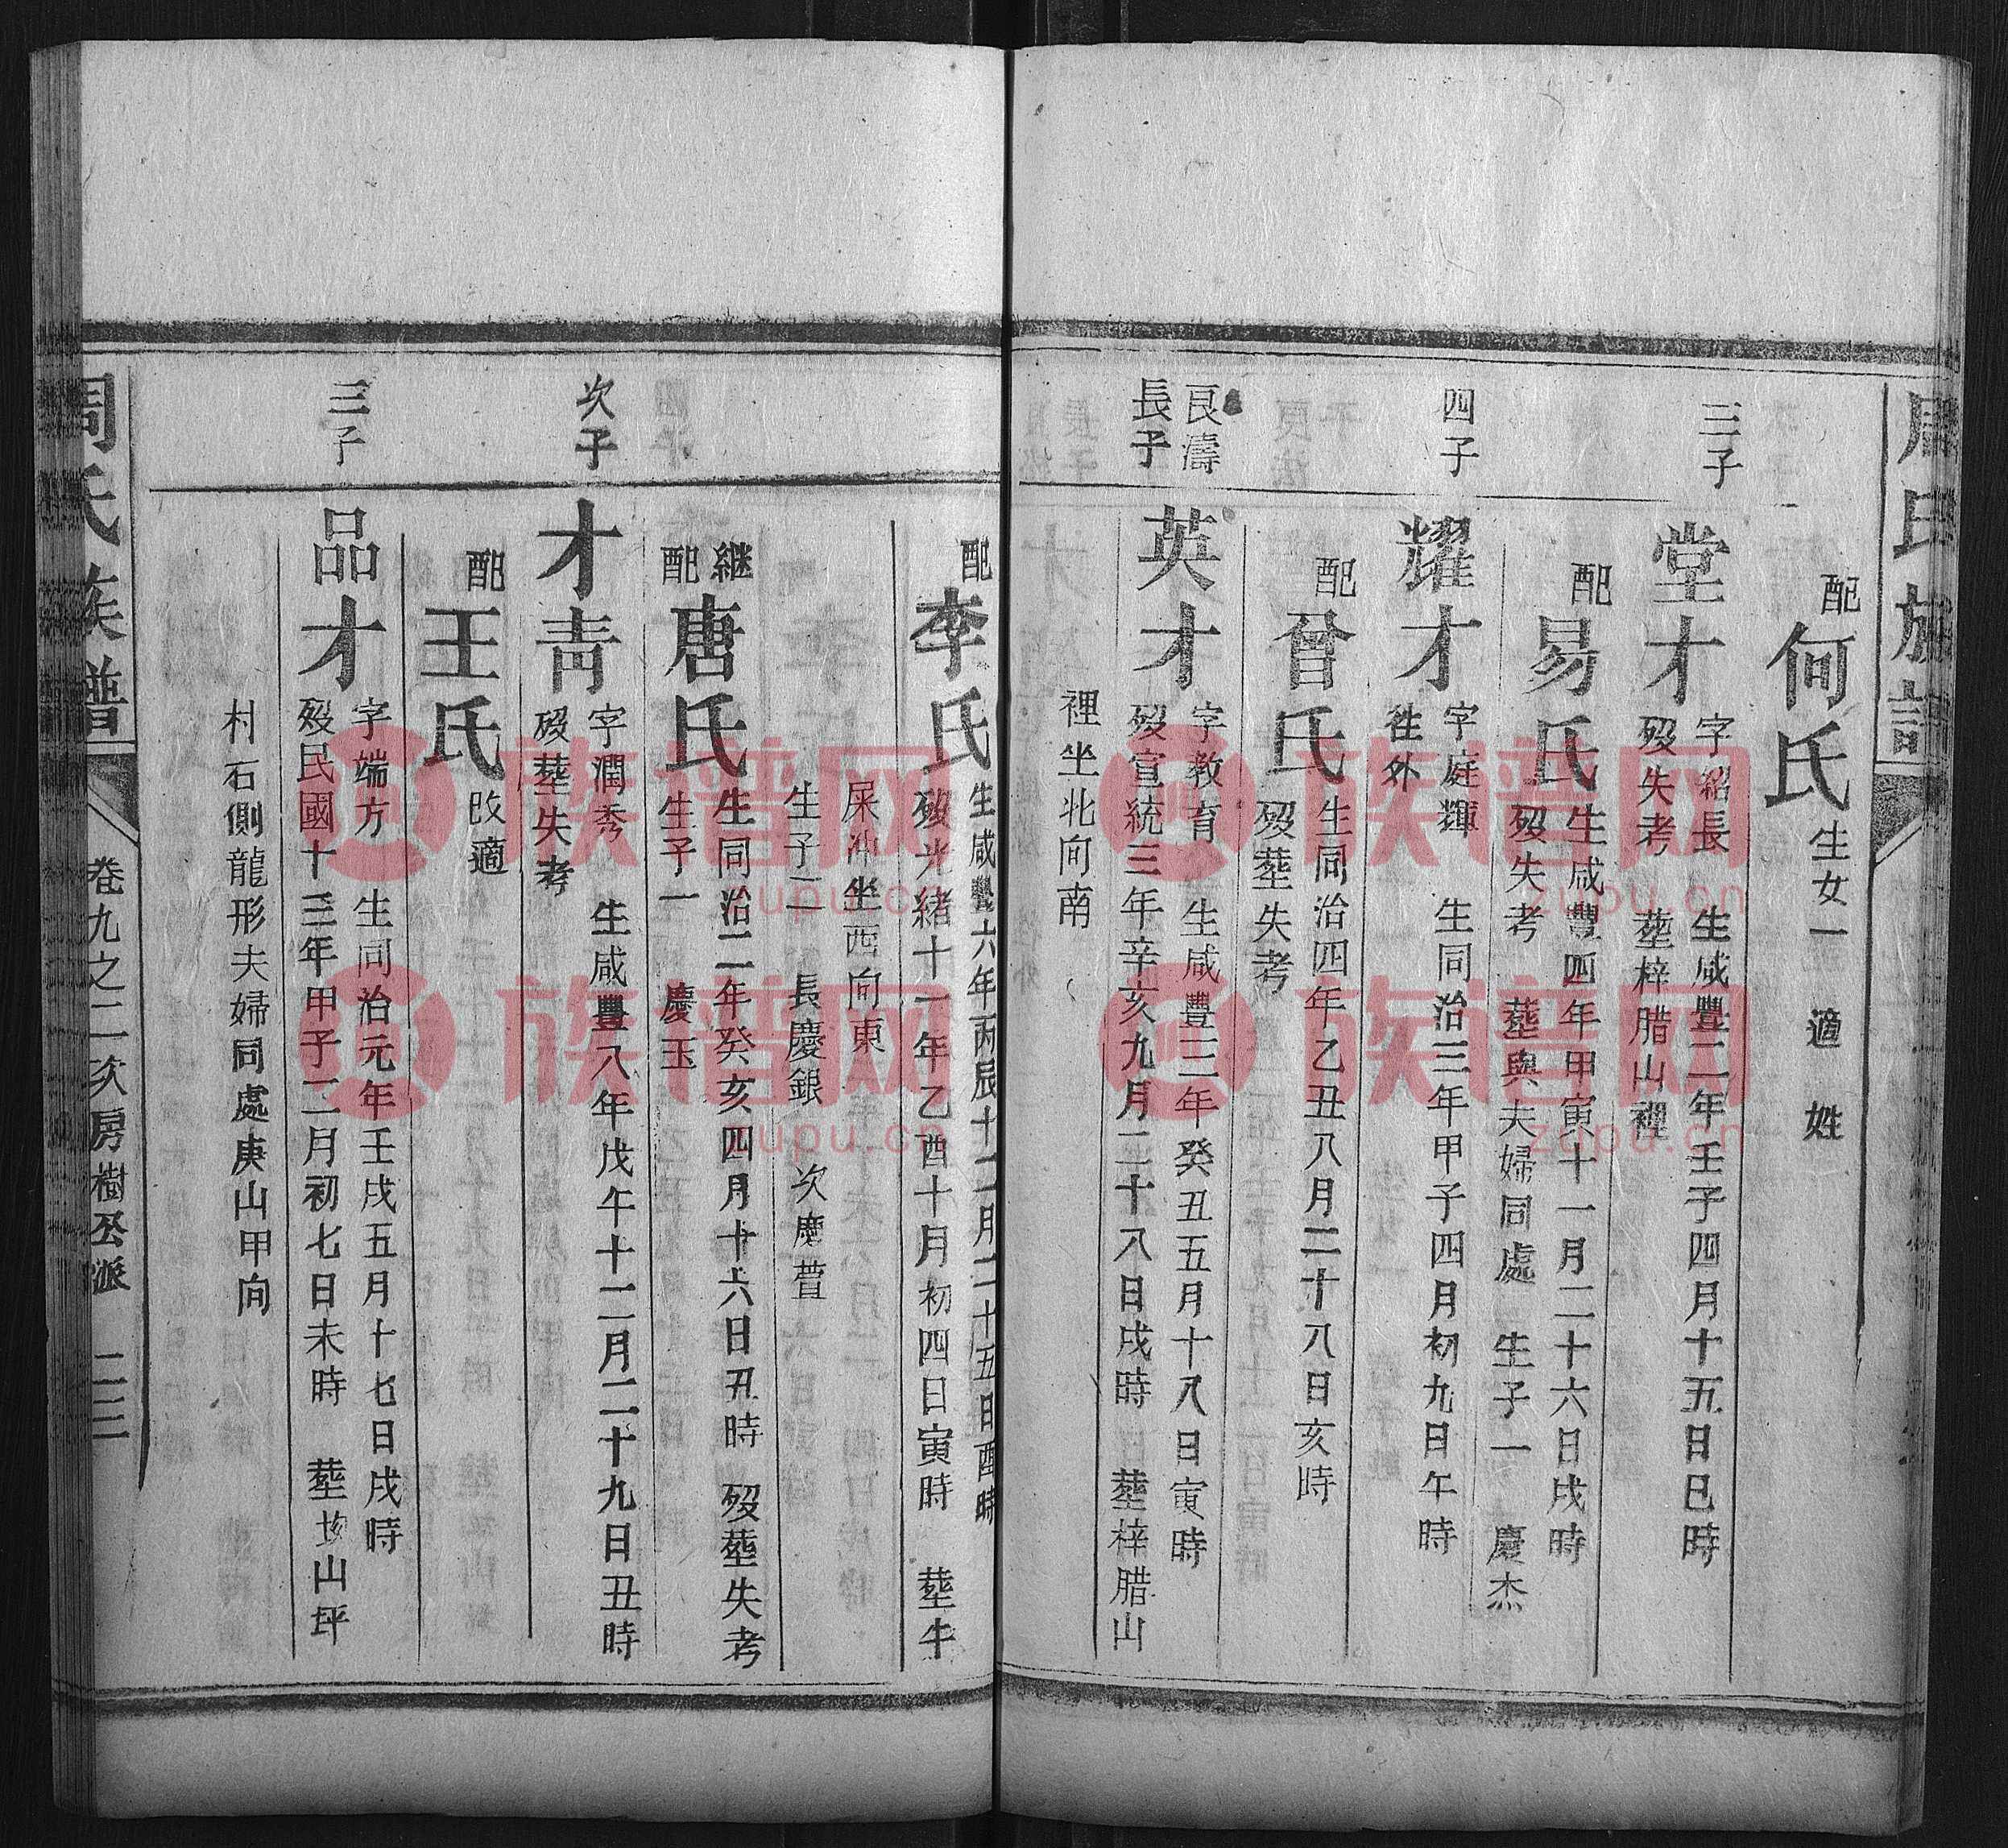 周氏族譜
配何氏
生女一　適　姓
三子
堂才
字紹長　生咸豐二年壬子四月十五日巳時
歿失考　塟梓腊山裡
配易氏
生咸豐四年甲寅十一月二十六日戌時
歿失考　塟與夫婦同處　生子一　慶杰
四子
耀才
字庭輝　生同治三年甲子四月初九日午時
徃外
配曾氏
生同治四年乙丑八月二十八日亥時
歿塟失考
良濤
長子
英才
字教育　生咸豐三年癸丑五月十八日寅時
歿宣統三年辛亥九月二十八日戌時　塟梓腊山
裡坐北向南
配李氏
生咸豐六年丙辰十二月二十五日酉時
歿光緒十一年乙酉十月初四日寅時　塟牛
屎沖坐西向東
生子二　長慶銀　次慶萱
継配唐氏
生同治二年癸亥四月十六日丑時　歿塟失考
生子一　慶玉
次子
才青
字潤秀　生咸豐八年戊午十二月二十九日丑時
歿塟失考
配王氏
改適
三子
品才
字端方　生同治元年壬戌五月十七日戌時
歿民國十三年甲子二月初七日未時　塟坳山坪
村石側龍形夫婦同處庚山甲向
周氏族譜
卷九之二次房樹公派　二三
族谱网
zupu.cn
族谱网
zupu.cn
族谱网
zupu.cn
族谱网
zupu.cn